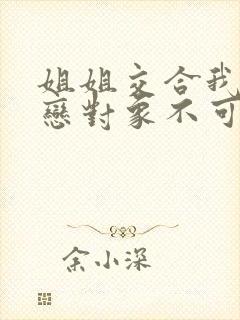 姐姐交合我
戀對象不可
余小深